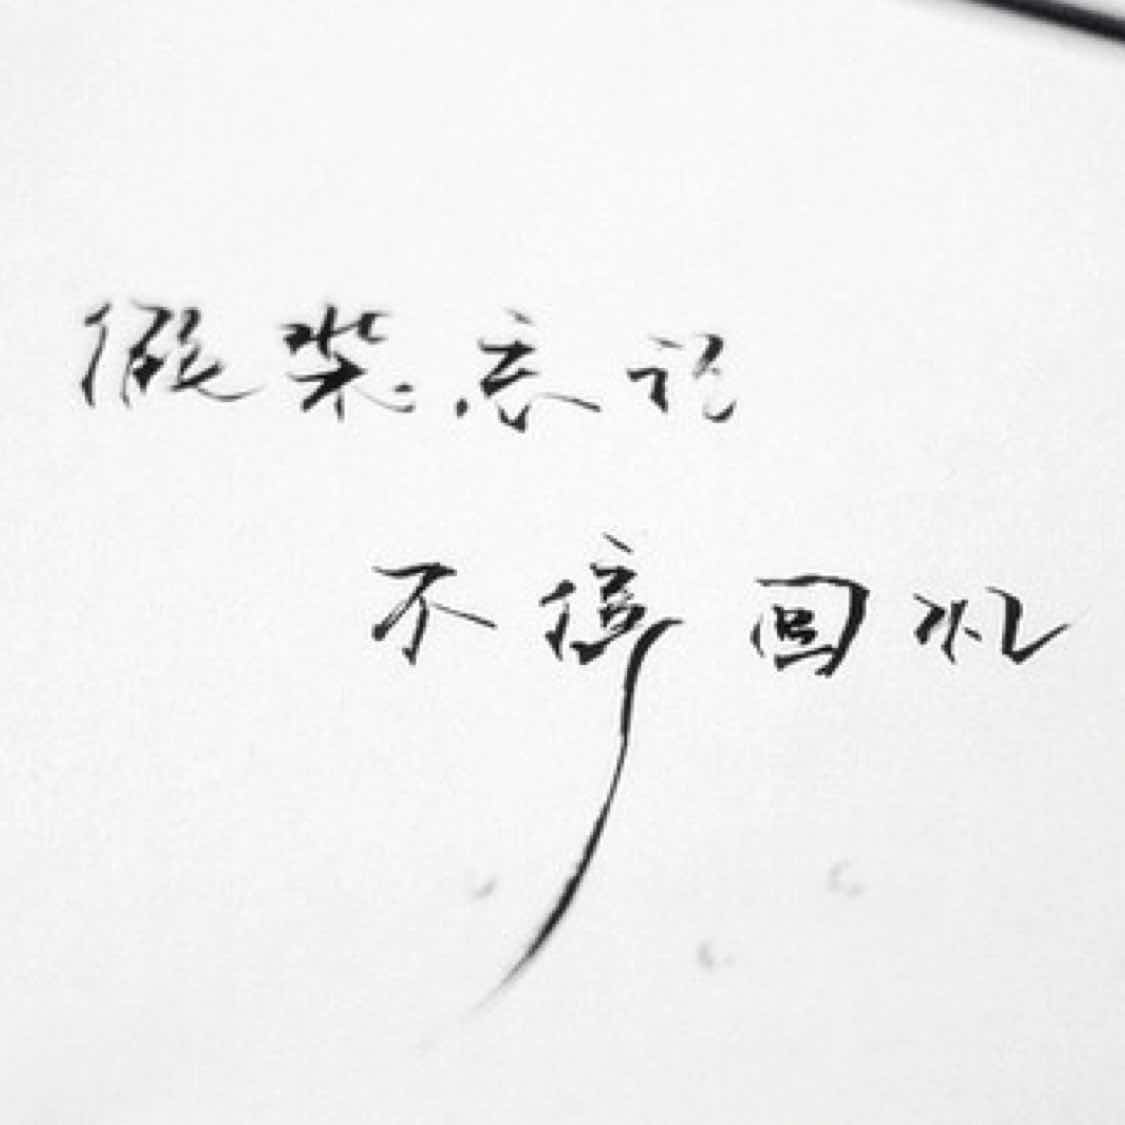 假装忘记
不停回忆